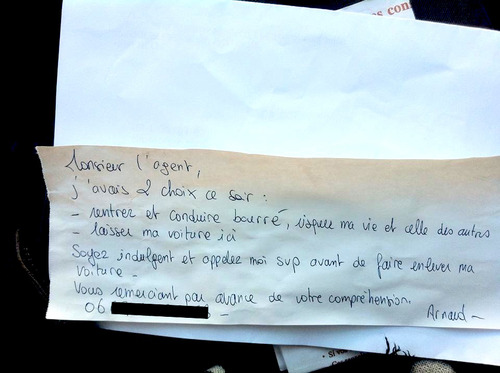 s con
Monsieur l'agent,
j'avais 2 choix ce soir :
- rentrer et conduire bourré, risquer ma vie et celle des autres
- laisser ma voiture ici
Soyez indulgent et appelez moi svp avant de faire enlever ma
voiture -
Vous remerciant par avance de votre compréhension.
06 -
Arnaud -